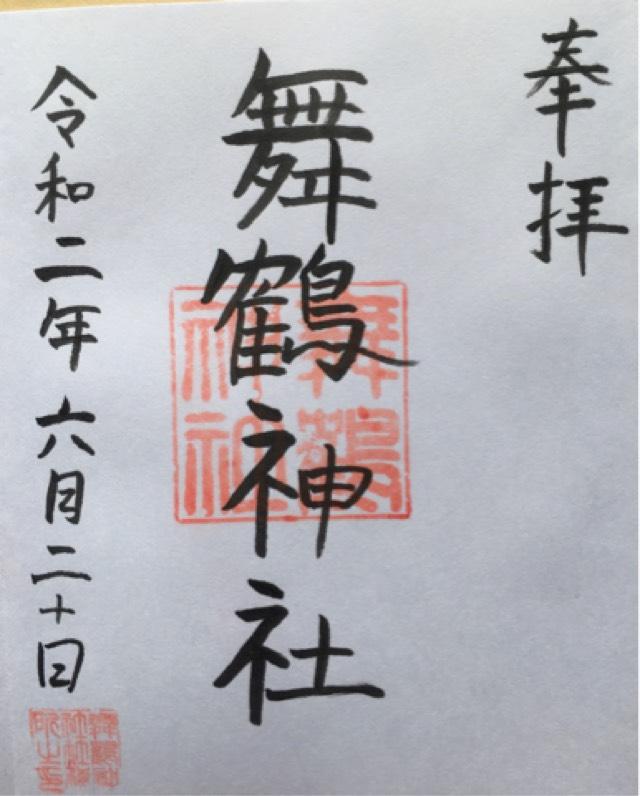 奉拝
舞鶴神社
舞鶴神社
令和二年六月二十日